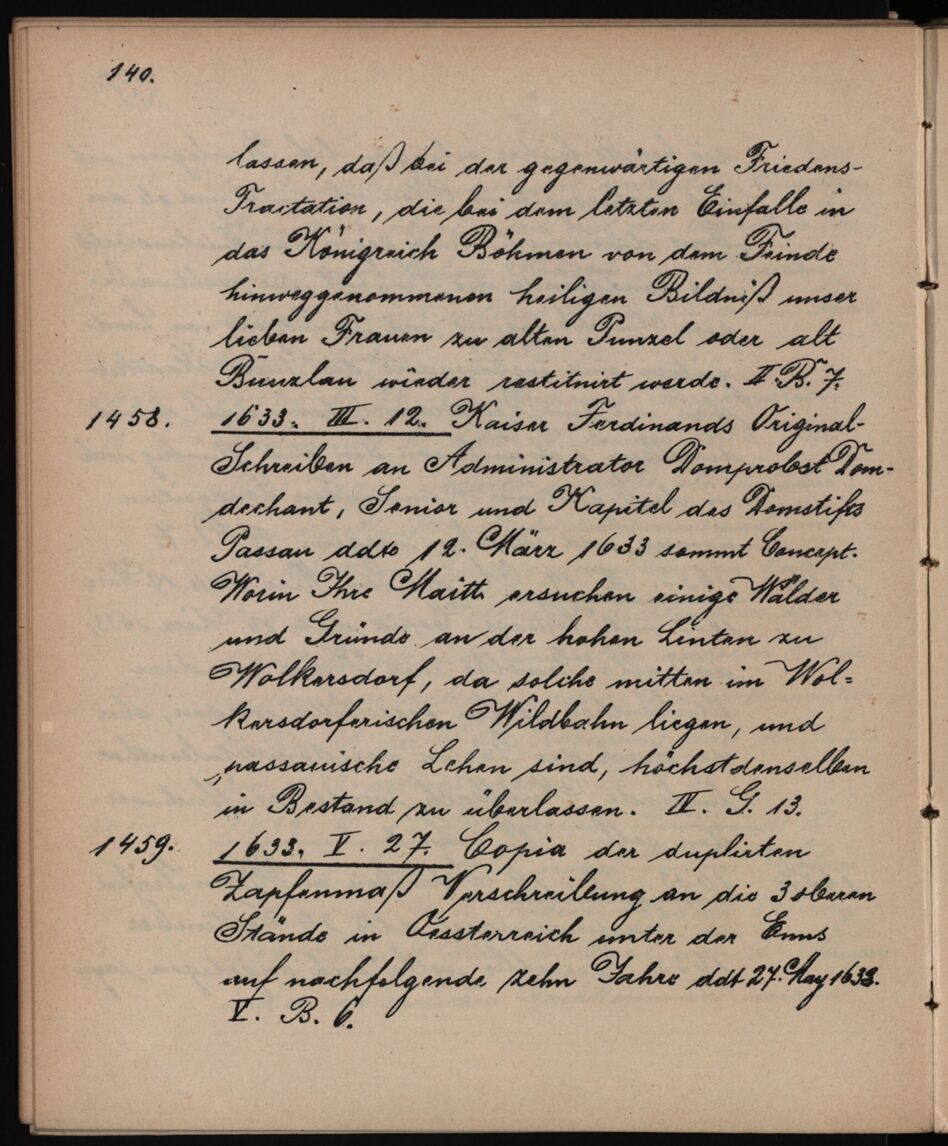 140.
lassen, daß bei der gegenwärtigen Friedens-
Tractation, die bei dem letzten Einfalle in
das Königreich Böhmen von dem Feinde
hinweggenommenen heiligen Bildniß unser
lieben Frauen zu alten Punzel oder alt
Bunzlau wieder restituirt werde. II. B. 7.
1458. 1633. III. 12. Kaiser Ferdinands Original-
Schreiben an Administrator Domprobst Dom-
dechant, Senior und Kapitel des Domstifts
Passau ddto 12. März 1633 sammt Concept.
Worin Ihre Maitt. ersuchen einige Wälder
und Gründe an der hohen Linten zu
Wolkersdorf, da solche mitten im Wol=
kersdorferischen Wildbahn liegen, und
passauische Lehen sind, höchstdenselben
in Bestand zu überlassen. II. G. 13.
1459. 1633. V. 27. Copia der duplirten
Zapfenmaß Verschreibung an die 3 oberen
Stände in Oessterreich unter der Enns
auf nachfolgende zehn Jahre ddt 27. May 1633.
V. B. 6.